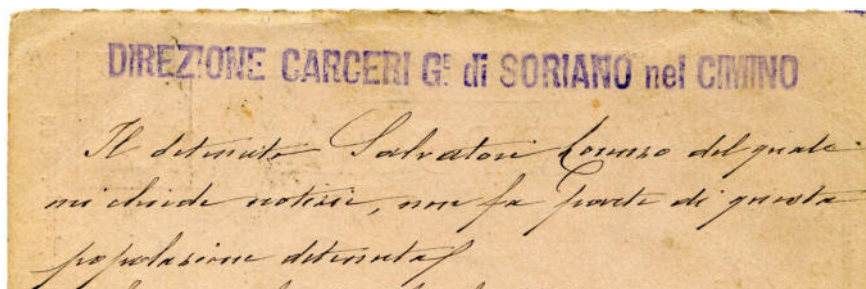 DIREZIONE CARCERI G.E di SORIANO nel CIMINO
Il detenuto Salvatori Lorenzo del quale
mi chiede notizie, non fa parte di questa
popolazione detenuta